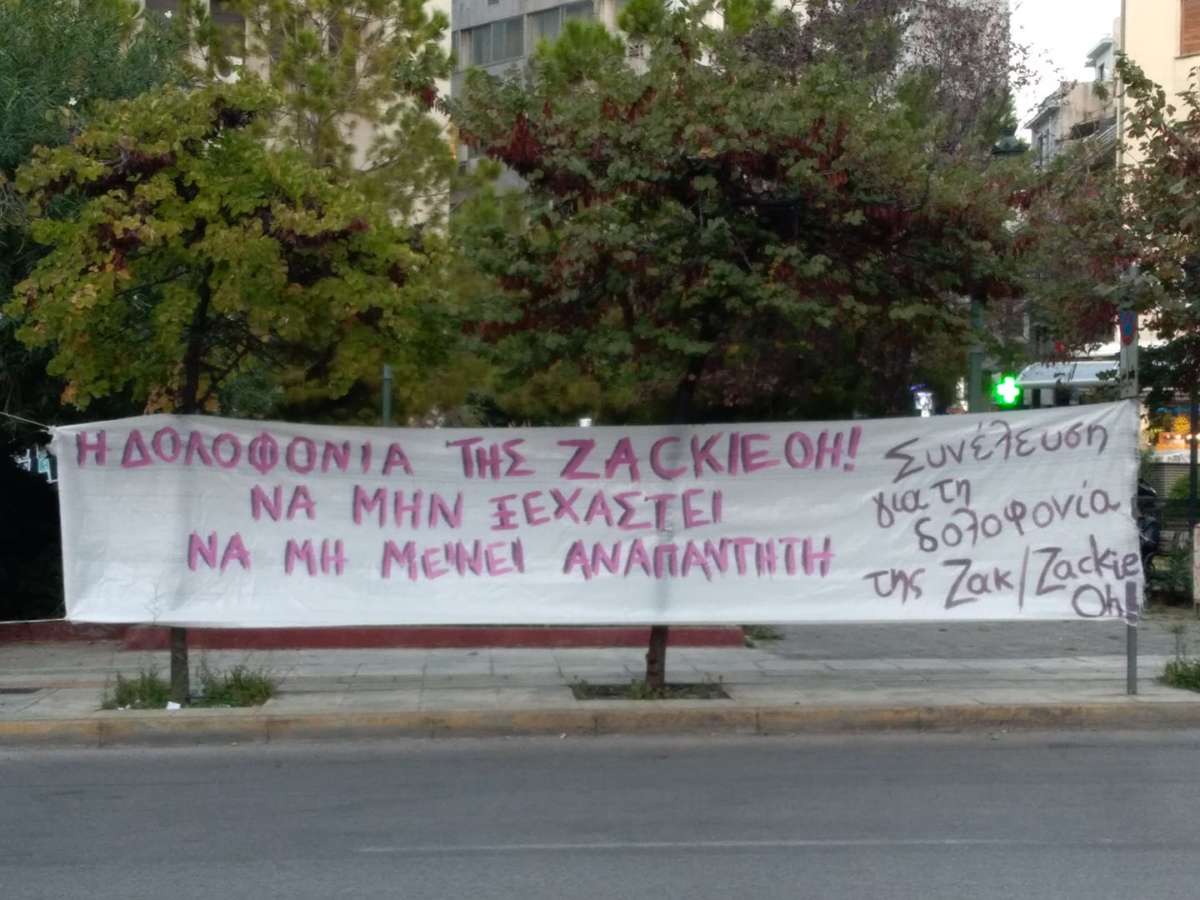 Η ΔΟΛΟΦΟΝΙΑ ΤΗΣ ZACKIE OH!
ΝΑ ΜΗΝ ΞΕΧΑΣΤΕΙ
ΝΑ ΜΗ ΜΕΊΝΕΙ ΑΝΑΠΑΝΤΗΤΗ
Συνέλευση
για τη
δολοφονία
της Ζακ/Zackie
Oh!